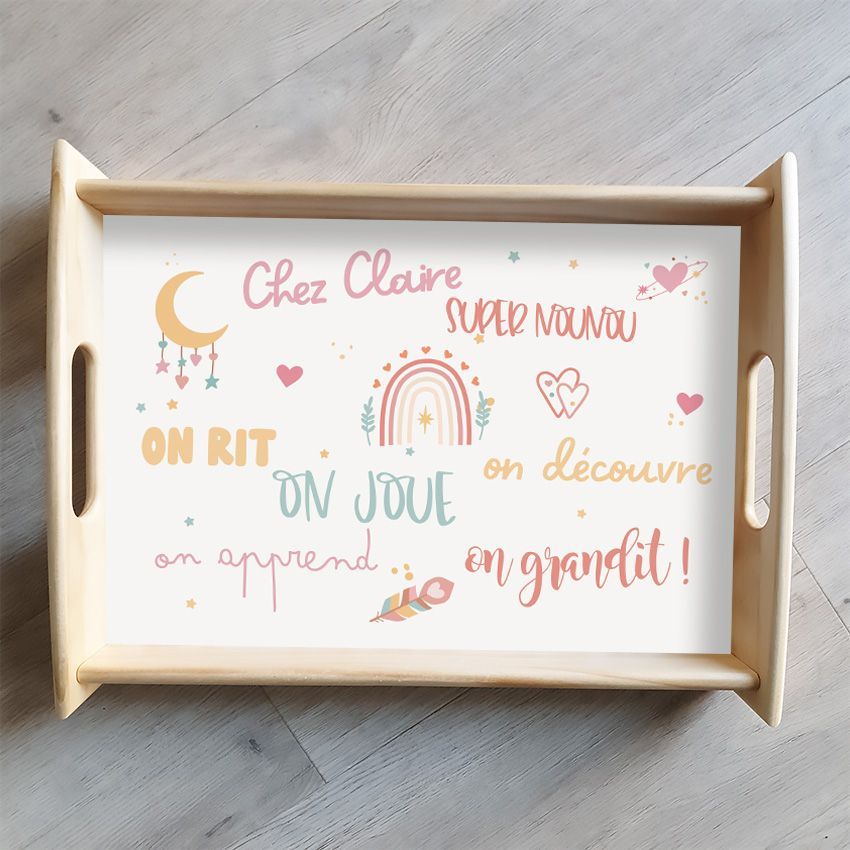 Chez Claire
SUPER NOUNOU
ON RIT
on découvre
ON JOUE
on apprend
on grandit !